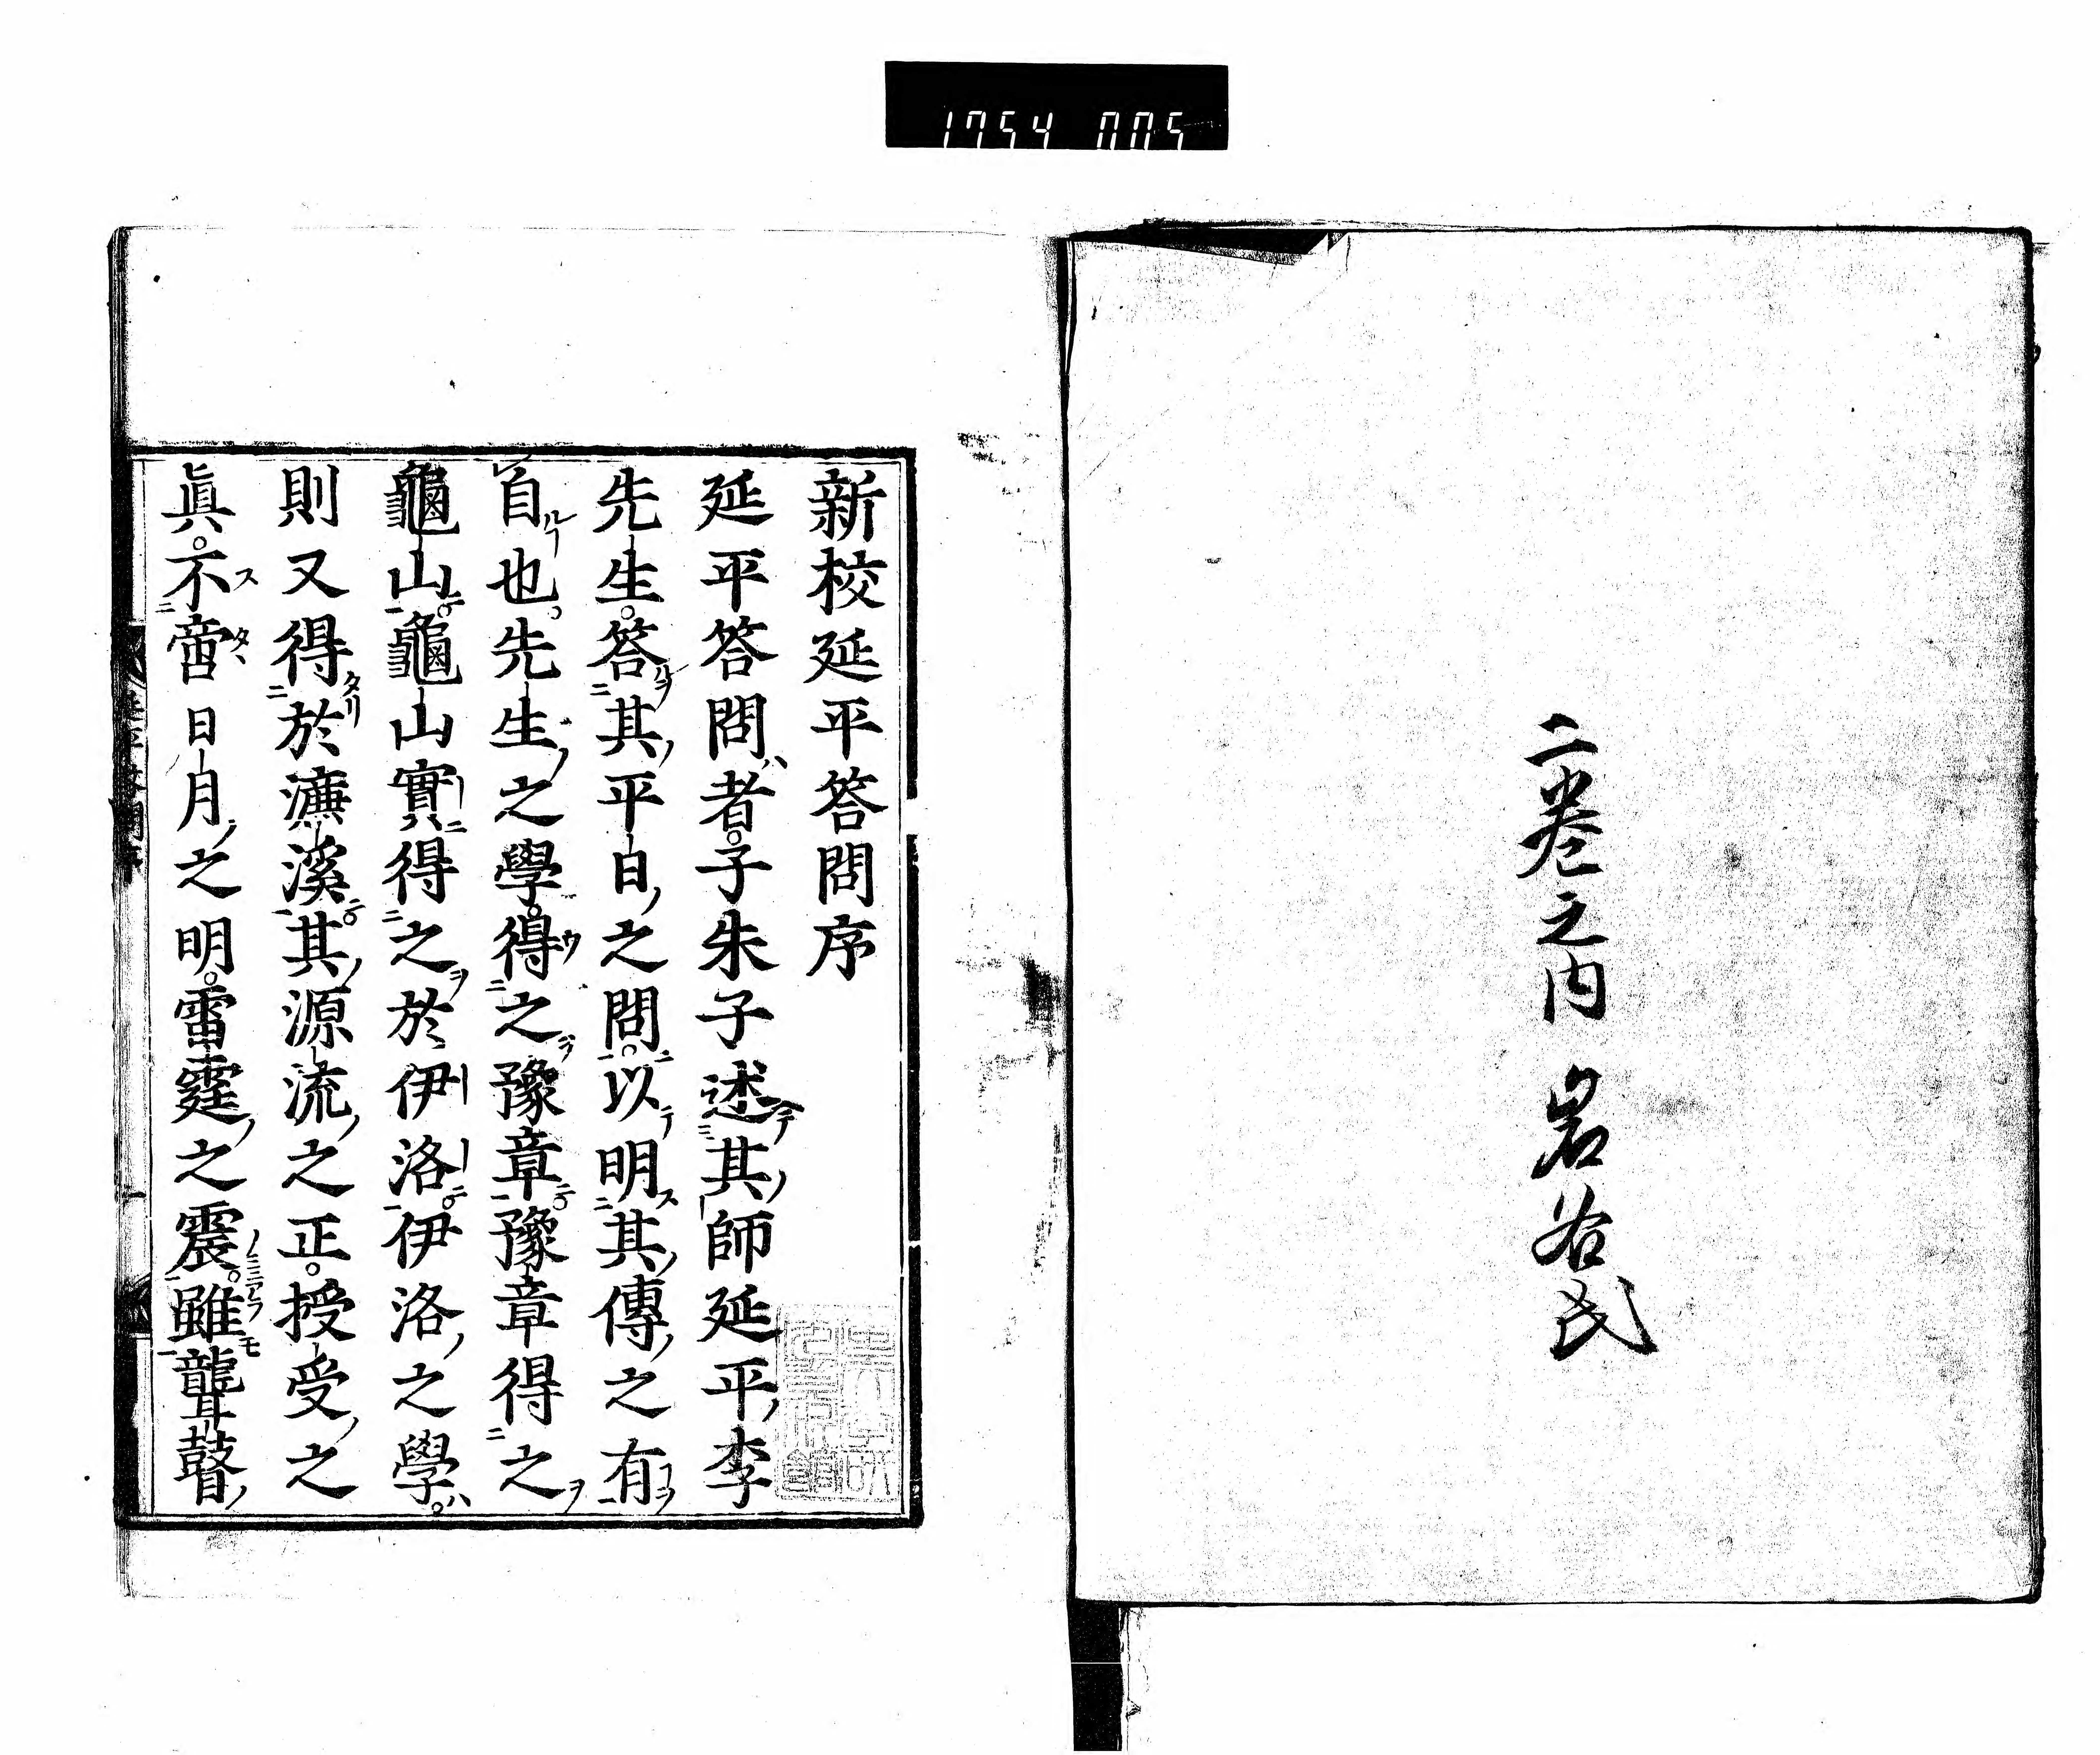 1754 005
二巻之内 岩谷氏
新校延平答問序
延平答問者。子朱子述其師延平李
先生。答其平日之問。以明其傳之有
自也。先生之學。得之豫章。豫章得之
龜山。龜山實得之於伊洛。伊洛之學。
則又得於濂溪。其源流之正。授受之
眞。不啻日月之明。雷霆之震。雖聾瞽